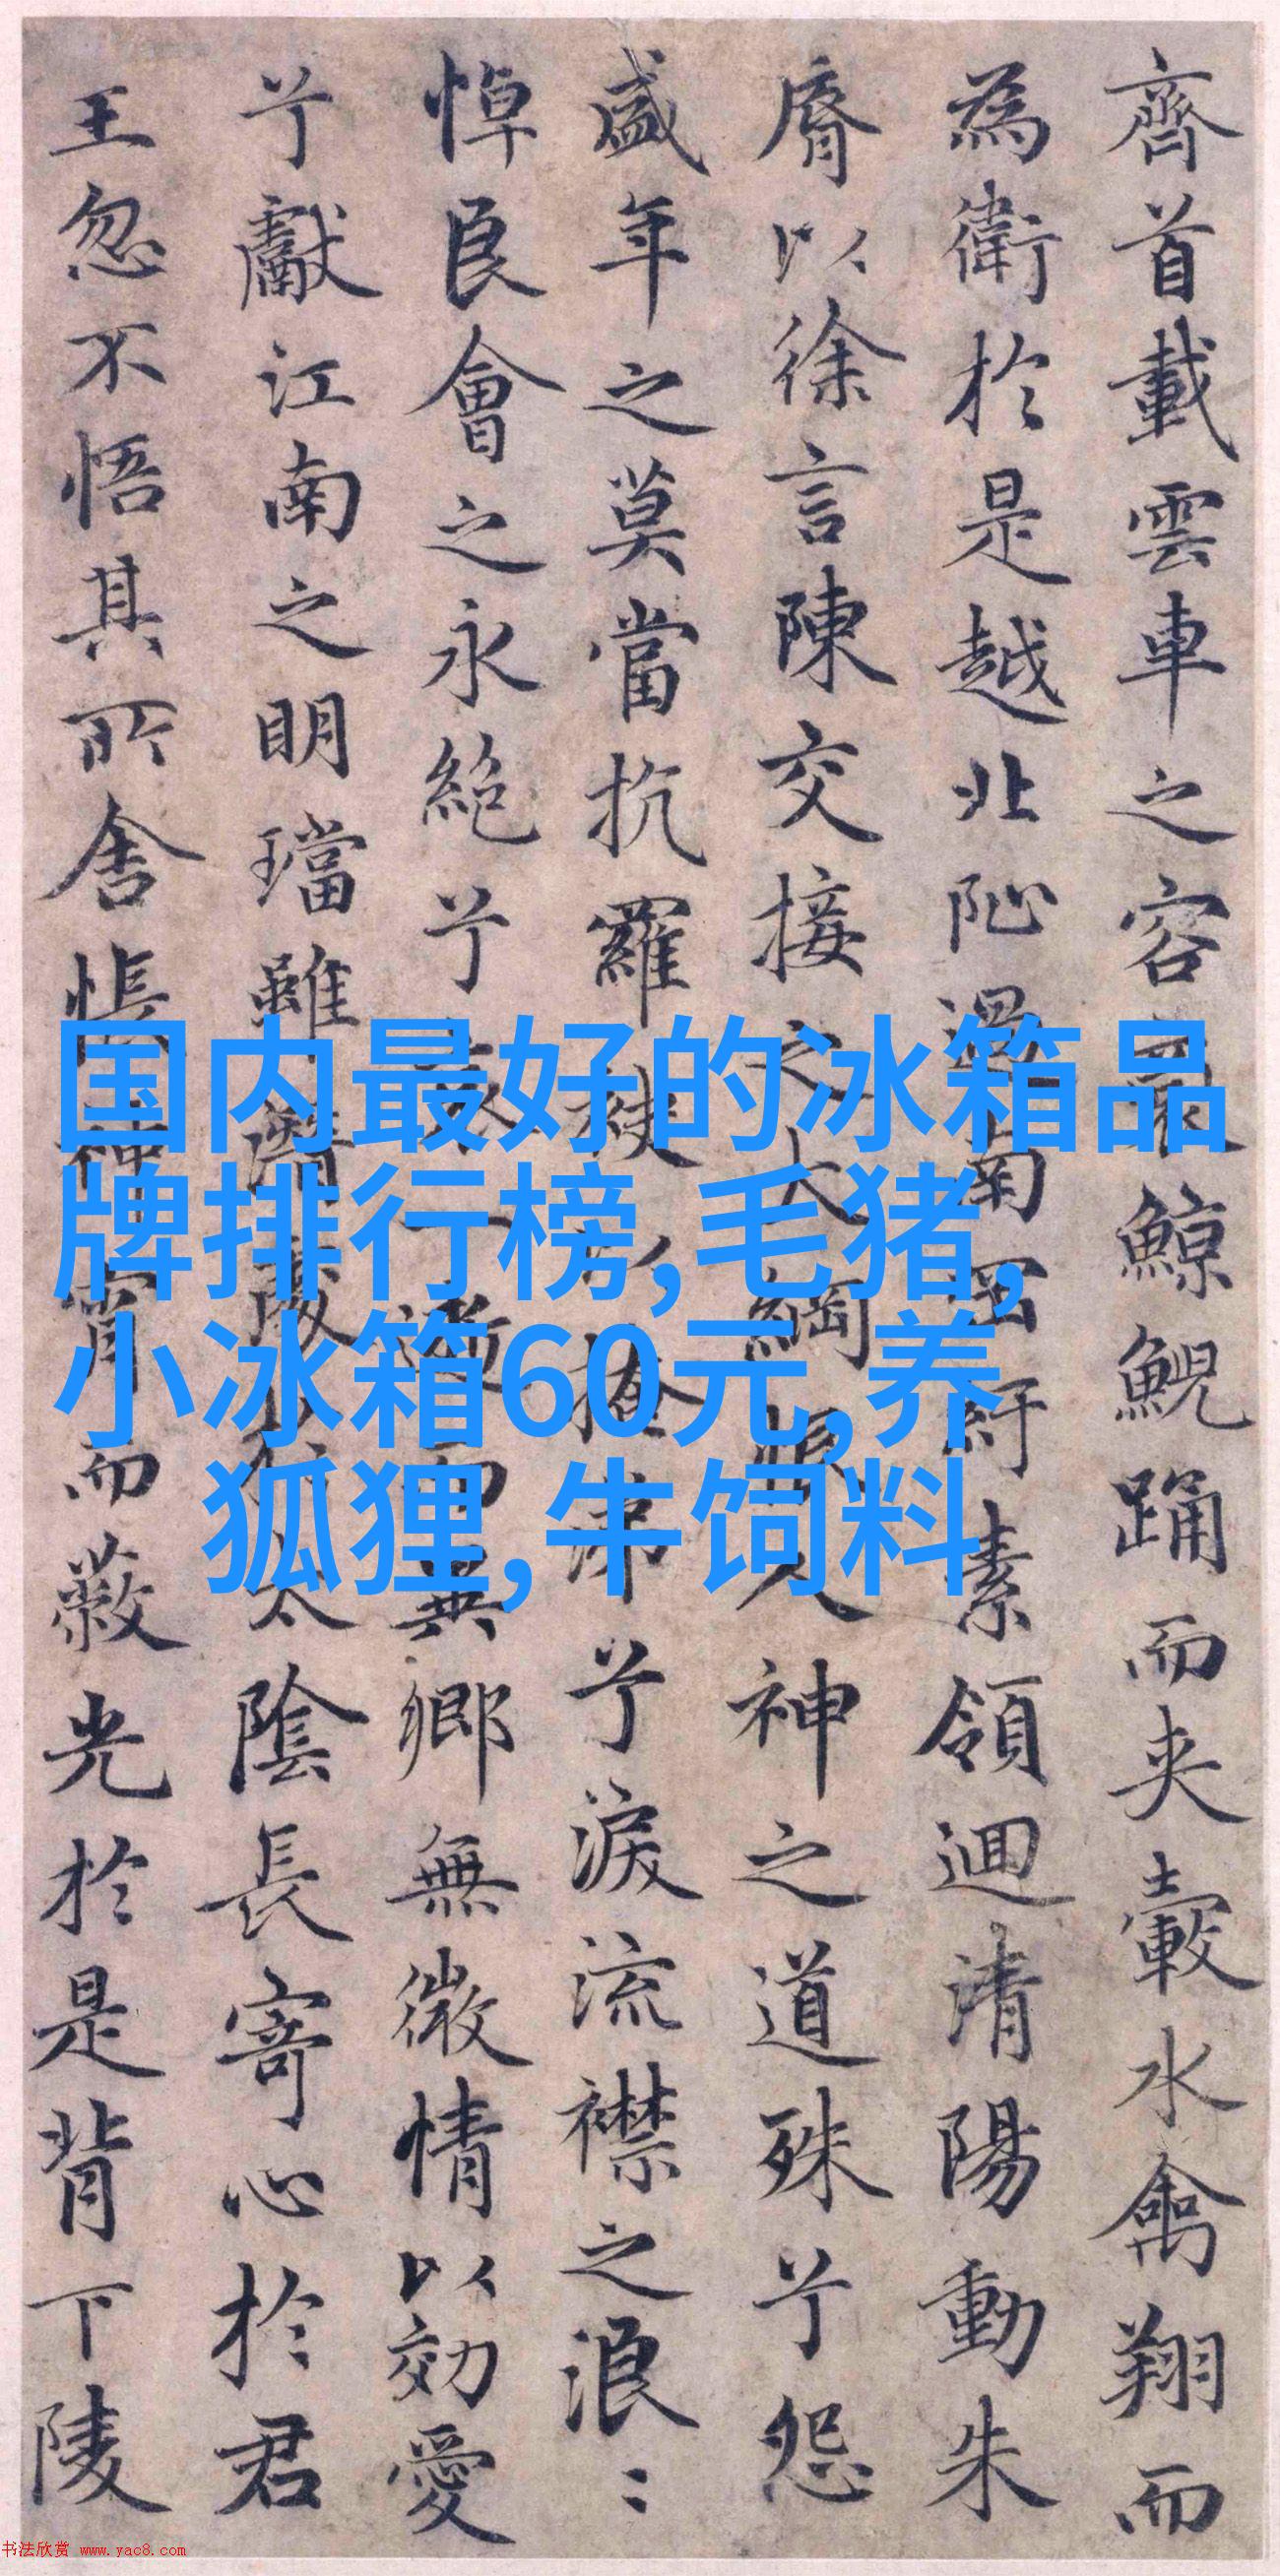 齊首載雲車之容裔鯨鯢踊而夾轂水禽翔而
為衛於是越北沚過南岡紆素領迴清陽動朱
脣以徐言陳交接之大綱恨人神之道殊兮怨
盛年之莫當抗羅袂以掩涕兮淚流襟之浪〻
悼良會之永絕兮哀一逝而異鄉無微情以効愛
兮獻江南之明璫雖潛處於太陰長寄心於君
王忽不悟其所舍悵神宵而蔽光於是背下陵
国内最好的冰箱品
牌排行榜,毛猪,
小冰箱60元,养
狐狸,牛饲料
书法欣赏 www.yac8.com